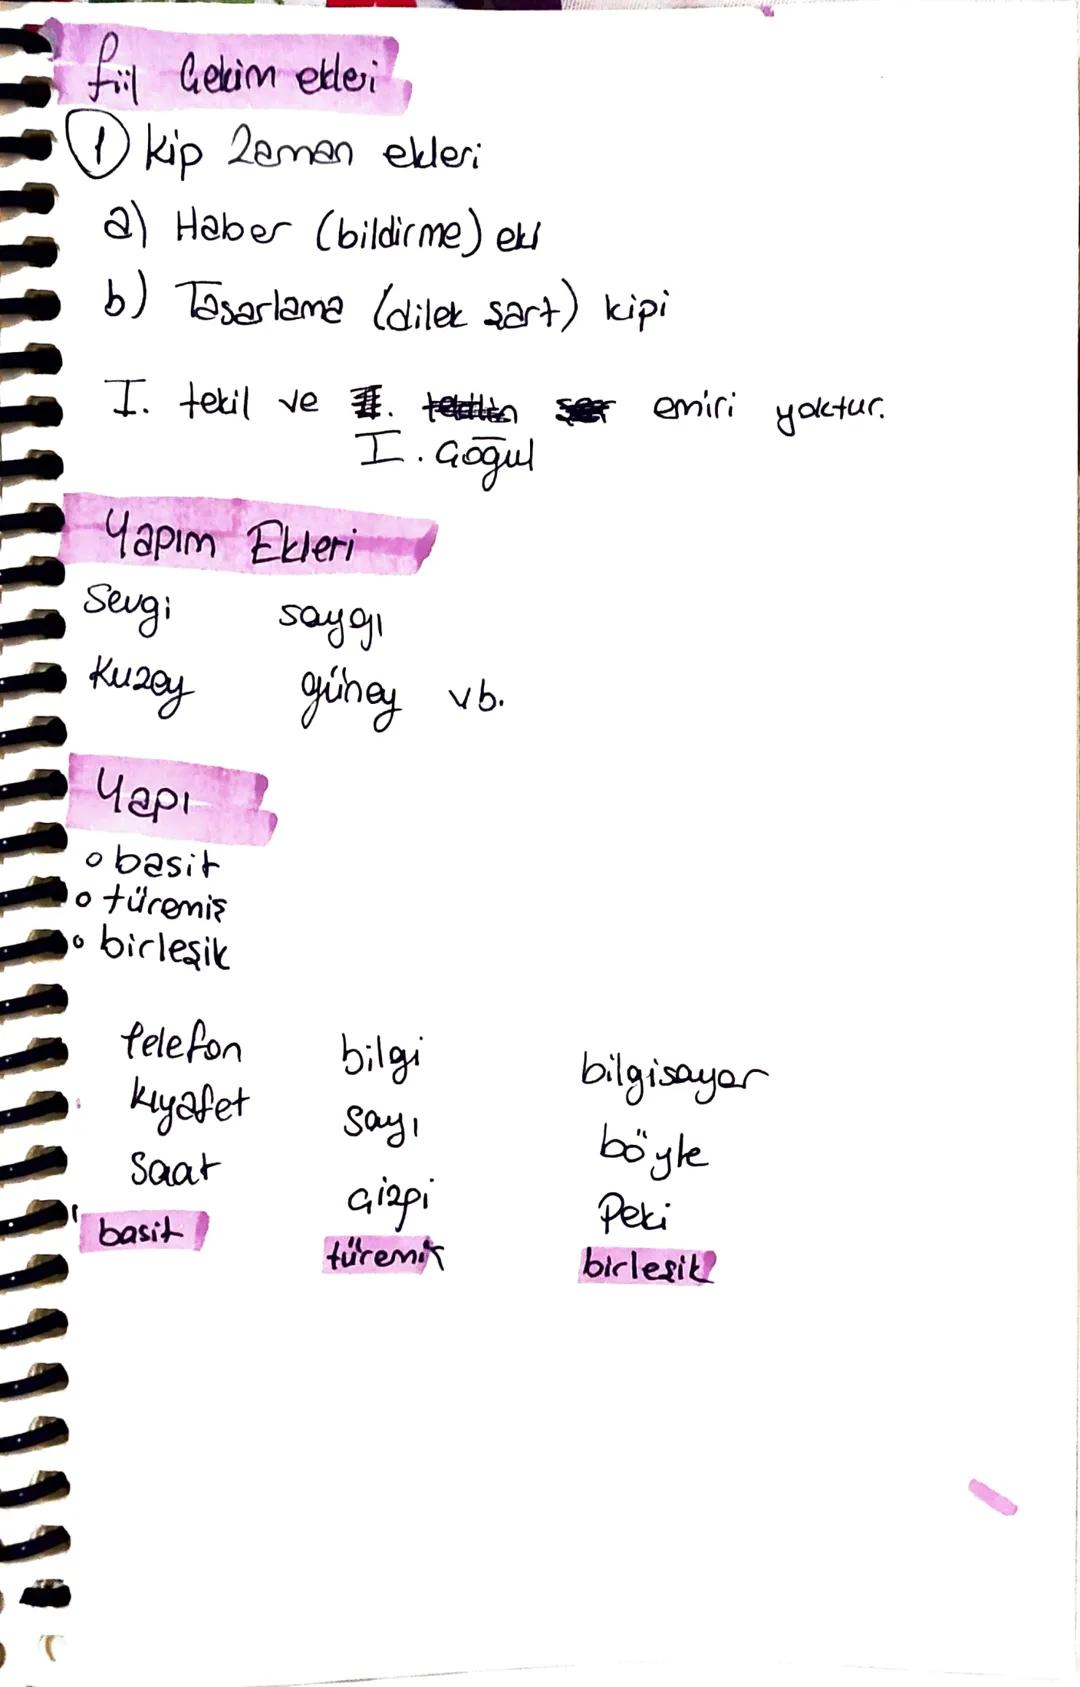 fiil Çekim ekleri
1 kip zaman ekleri
a) Haber (bildirme) eki
b) Tasarlama (dilek şart) kipi
I. tekil ve emiri yoktur.
I. Çoğul
Yapım Ekleri
Sevgi saygı
Kuzey güney vb.
Yapı
o basit
o türemiş
o birleşik
telefon bilgi bilgisayar
kıyafet sayı böyle
Saat Çizgi Peki
basit türemiş birleşik